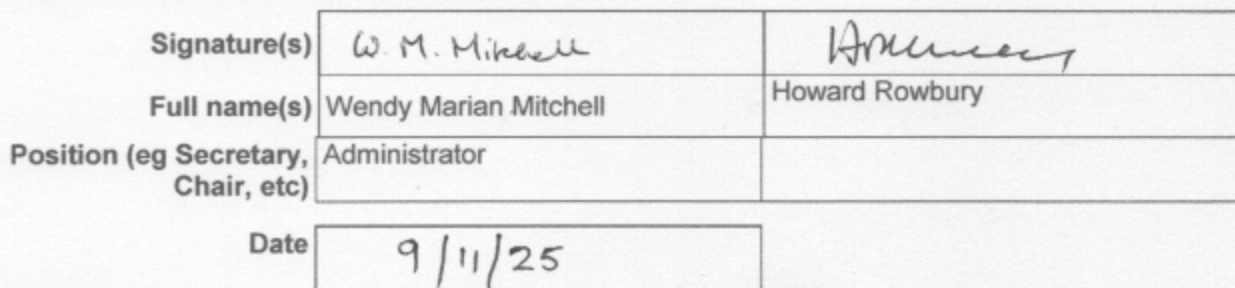 Signature(s) W. M. Mitchell
Full name(s) Wendy Marian Mitchell Howard Rowbury
Position (eg Secretary, Administrator
Chair, etc)
Date 9/11/25